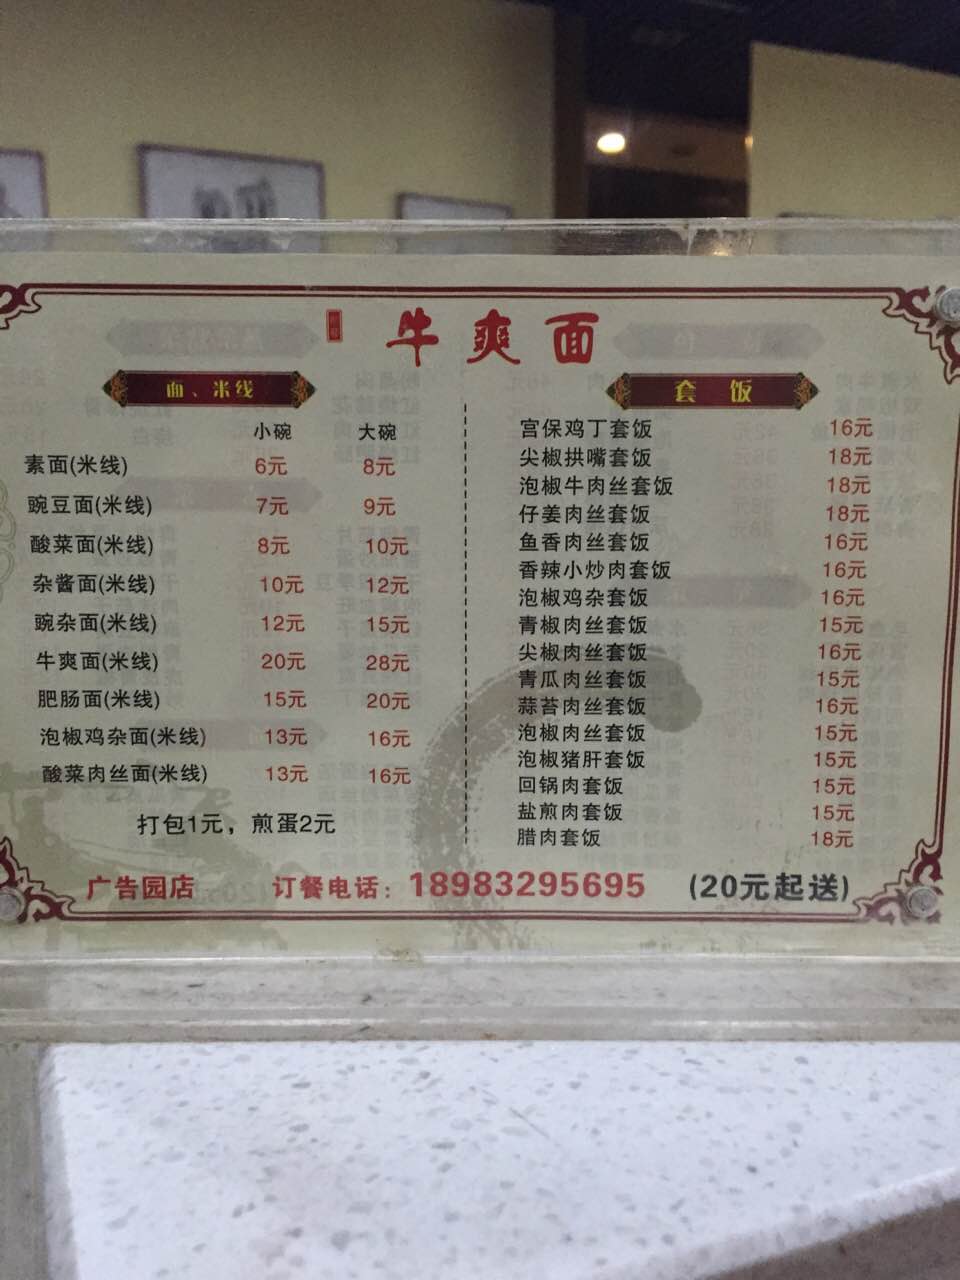 牛爽面
面、米线
小碗 大碗
素面(米线) 6元 8元
豌豆面(米线) 7元 9元
酸菜面(米线) 8元 10元
杂酱面(米线) 10元 12元
豌杂面(米线) 12元 15元
牛爽面(米线) 20元 28元
肥肠面(米线) 15元 20元
泡椒鸡杂面(米线) 13元 16元
酸菜肉丝面(米线) 13元 16元
打包1元，煎蛋2元
套饭
宫保鸡丁套饭 16元
尖椒拱嘴套饭 18元
泡椒牛肉丝套饭 18元
仔姜肉丝套饭 18元
鱼香肉丝套饭 16元
香辣小炒肉套饭 16元
泡椒鸡杂套饭 16元
青椒肉丝套饭 15元
尖椒肉丝套饭 16元
青瓜肉丝套饭 15元
蒜苔肉丝套饭 16元
泡椒肉丝套饭 15元
泡椒猪肝套饭 15元
回锅肉套饭 15元
盐煎肉套饭 15元
腊肉套饭 18元
广告园店 订餐电话：18983295695 (20元起送)